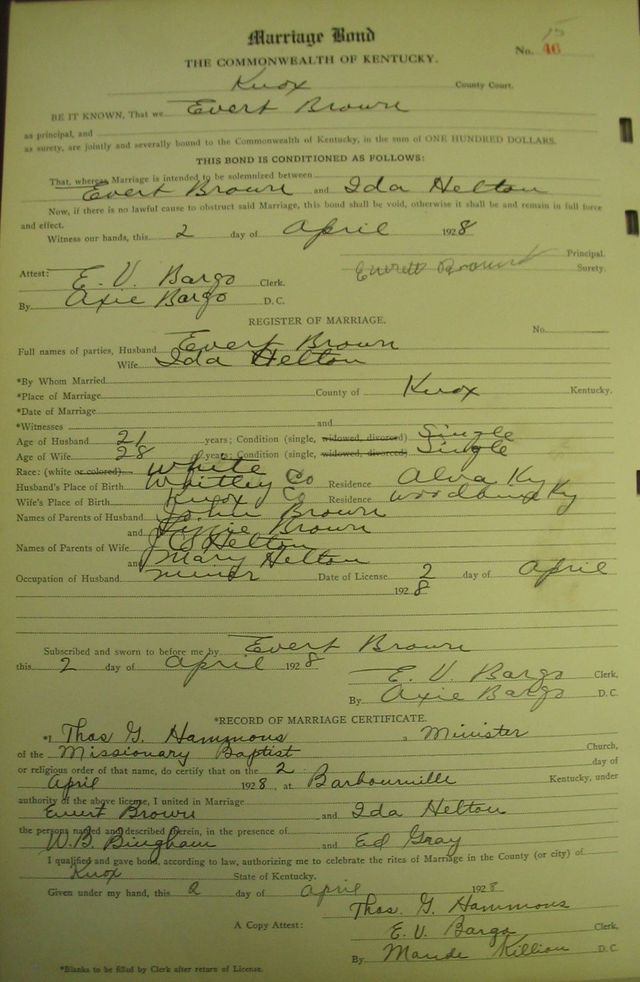 15
Marriage Bond
No. 46
THE COMMONWEALTH OF KENTUCKY.
Knox County Court.
BE IT KNOWN, That we Evert Brown
as principal, and
as surety, are jointly and severally bound to the Commonwealth of Kentucky, in the sum of ONE HUNDRED DOLLARS.
THIS BOND IS CONDITIONED AS FOLLOWS:
That, whereas Marriage is intended to be solemnized between
Evert Brown and Ida Helton
Now, if there is no lawful cause to obstruct said Marriage, this bond shall be void, otherwise it shall be and remain in full force
and effect.
Witness our hands, this 2 day of April 1928
Principal.
Everett Brown Surety.
Attest: E. V. Bargo Clerk.
By Axie Bargo D. C.
REGISTER OF MARRIAGE.
No.
Full names of parties, Husband Evert Brown
Wife Ida Helton
*By Whom Married
*Place of Marriage County of Knox Kentucky.
*Date of Marriage
*Witnesses and
Age of Husband 21 years; Condition (single, widowed, divorced) Single
Age of Wife 28 years; Condition (single, widowed, divorced) Single
Race: (white or colored) White
Husband's Place of Birth Whitley Co Residence Alva Ky
Wife's Place of Birth Knox Co Residence Woodbine Ky
Names of Parents of Husband John Brown
and Brown
Names of Parents of Wife Helton
and Mary Helton
Occupation of Husband minor Date of License 2 day of April
1928
Subscribed and sworn to before me by Evert Brown
this 2 day of April 1928
E. V. Bargo Clerk,
By Axie Bargo D. C.
*RECORD OF MARRIAGE CERTIFICATE.
*I Thos G. Hammons a Minister
of the Missionary Baptist Church,
or religious order of that name, do certify that on the 2 day of
April 1928, at Barbourville Kentucky, under
authority of the above license, I united in Marriage
Evert Brown and Ida Helton
the persons named and described therein, in the presence of
W. B. Bingham and Ed Gray
I qualified and gave bond, according to law, authorizing me to celebrate the rites of Marriage in the County (or city) of
Knox State of Kentucky.
Given under my hand, this 2 day of April 1928
Thos. G. Hammons
A Copy Attest: E. V. Bargo Clerk,
By Maude Killion D. C.
*Blanks to be filled by Clerk after return of License.